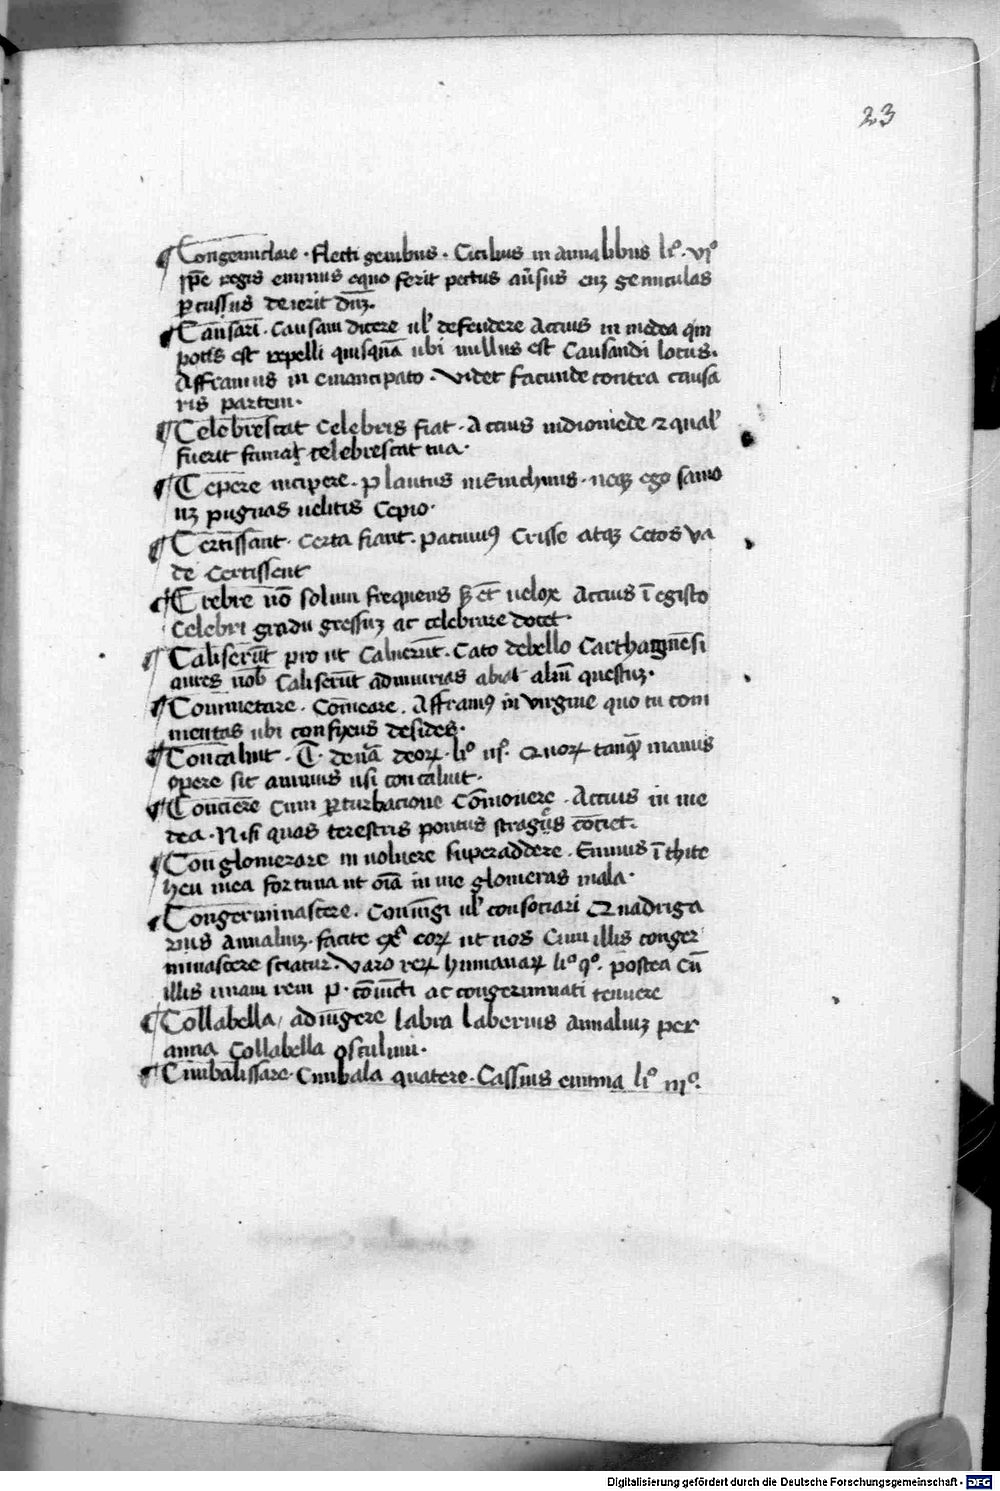 23
¶Congenuclare · flecti genibus · Cicilius in annalibus li° · vi°
ip̄e regis eminus equo ferit pectus aūsus eiꝫ geniculas
ꝑcussus deierit dn̄ꝫ.
¶Causari · Causam dicere ul' defendere Accius in medea qm
potis est repelli quisquā ubi nullus est Causandi locus.
Afframus in emancipato · videt facunde contra causa
ris partem.
¶Celebrescat Celebris fiat · Accius indiomede ⁊ qual'
fuerit celebrescat tua·
¶Cepere incipere · Plautus · neqꝫ ego
pugnas uelitis Cepio·
¶Certissant · Certa fiant · pacuuiꝰ Crisse atqꝫ Cetos va
de Certissent
¶Crebre nō solum frequens sꝫ et̄ uelox Accius ī egisto
Celebri gradu gressuꝫ ac celebrare docet·
¶Caliserūt pro ut Caluerūt · Cato debello Carthagnēsi
aures nob̄ Caliserūt adiniurias abiat aliū questuꝫ·
¶Commetare · Com̄eare · Afframꝰ in virgine quo tu com
mentas ubi confixus desides·
¶Concaluit · T · de nā deoꝝ · li° ii° · Quoꝝ tanqꝫ manus
opere sic animus usi concaluit·
¶Conciere Cum ꝑturbacione Com̄ouere · Accius in me
dea · Nisi quas terestris pontus strages cōciet·
¶Conglomerare in uoluere superaddere · Ennius ī thite
heu mea fortuna ut oīa in me glomeras mala·
¶Congerminascere · Coniungi ul' consociari Quadriga
rius Annaliuꝫ · facite eoꝝ ut nos Cum illis conger
minascere sciatur · Varo reꝝ humanaꝝ li° q° · postea cū
illis unam rem ꝑ · cōiuncti ac congerminati tenuere
¶Collabella / adiūgere labra laberius annaliuꝫ per
anna Collabella osculum·
¶Cimbalissare · Cimbala quatere · Cassius emina li° iii°.
Digitalisierung gefördert durch die Deutsche Forschungsgemeinschaft - DFG